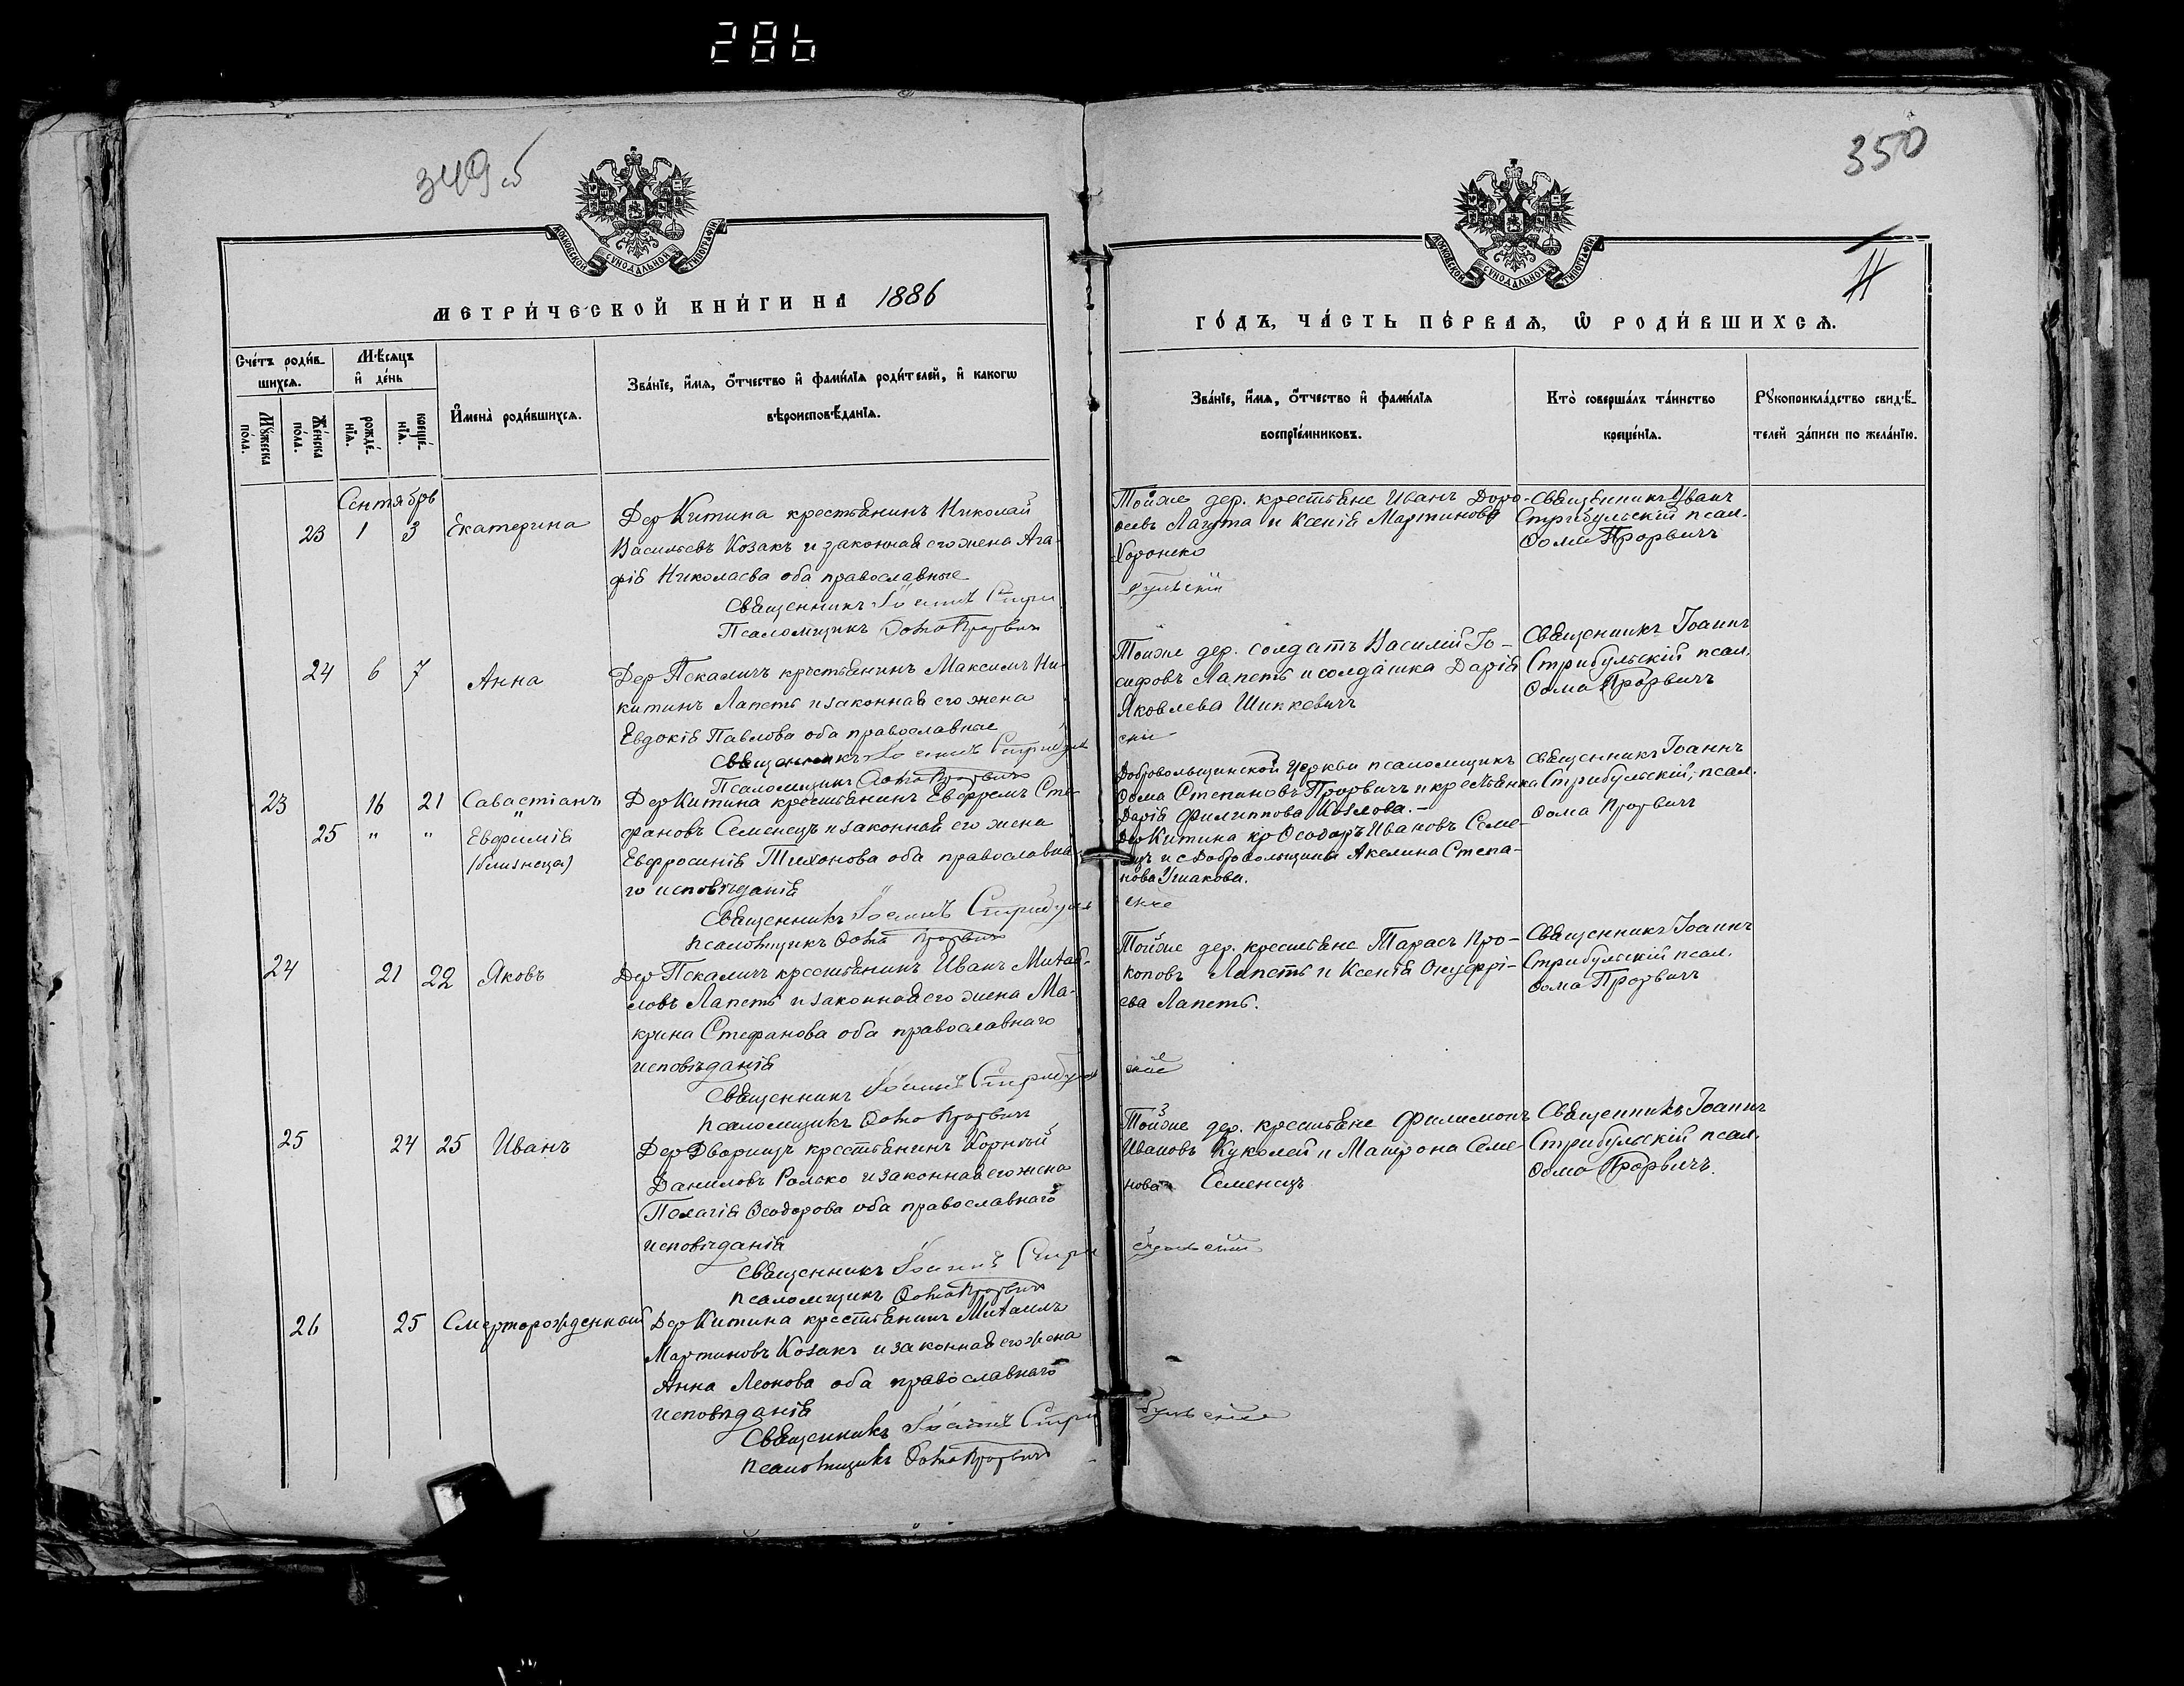 286
349 об
350
МОСКОВСКОЙ СУНОДАЛЬНОЙ ТИПОГРАФІИ
МОСКОВСКОЙ СУНОДАЛЬНОЙ ТИПОГРАФІИ
11
МЕТРИ́ЧЕСКОЙ КНИ́ГИ НА 1886
ГО́ДЪ, ЧА́СТЬ ПЕ́РВАѦ, Ѿ РОДИ́ВШИХСѦ.
Сче́тъ роди́в-
шихсѧ.
Мѣ́сѧцъ
и҆ де́нь
Мꙋ́жеска
по́ла.
Же́нска
по́ла.
рожде́-
нїѧ.
креще́-
нїѧ.
И҆мена̀ роди́вшихсѧ.
Зва́нїе, и҆́мѧ, ѻ҆́тчество и҆ фами́лїѧ роди́телей, и҆ какогѡ
вѣроисповѣ́данїѧ.
Зва́нїе, и҆́мѧ, ѻ҆́тчество и҆ фами́лїѧ
воспрїе́мниковъ.
Кто̀ соверша́лъ та́инство
креще́нїѧ.
Рꙋкоприкла́дство свидѣ́-
телей за́писи по жела́нїю.
Сентябрь
23 1 3 Екатерина
Дер Китина крестьянинъ Николай
Васильевъ Козакъ и законная его жена Ага-
фія Николаева оба православные
Священникъ Іоаннъ Стри
бульскій
Псаломщикъ Ѳома Прорвичъ
Тойже дер. крестьяне Иванъ Доро-
ѳеевъ Лагута и Ксенія Мартинова
Хоронеко
Священникъ Иванъ
Стрибульскій псал.
Ѳома Прорвичъ
24 6 7 Анна
Дер Пекаличъ крестьянинъ Максимъ Ни-
китинъ Лапеть и законная его жена
Евдокія Павлова оба православные
Священникъ Іоаннъ Стрибуль
скій
Псаломщикъ Ѳома Прорвичъ
Тойже дер. солдатъ Василій Іо-
сифовъ Лапеть и солдатка Дарія
Яковлева Шинкевичъ
Священникъ Іоаннъ
Стрибульскій псал.
Ѳома Прорвичъ
23 16 21 Савастіанъ
25 " " Евфимія
(близнеца)
Дер Китина крестьянинъ Евфремъ Сте-
фановъ Семенецъ и законная его жена
Евфросинія Тихонова оба православна-
го исповѣданія
Священникъ Іоаннъ Стрибуль
скій
псаломщикъ Ѳома Прорвичъ
Добровольщинской Церкви псаломщикъ
Ѳома Степановъ Прорвичъ и крестьянка
Дарія Филиппова Козлова.-
Дер Китина кр Ѳеодоръ Ивановъ Семе-
нецъ и с Добровольщины Акелина Степа-
нова Ушакова.
Священникъ Іоаннъ
Стрибульскій, псал.
Ѳома Прорвичъ
24 21 22 Яковъ
Дер Пекаличъ крестьянинъ Иванъ Михай-
ловъ Лапеть и законная его жена Ма-
крина Стефанова оба православнаго
исповѣданія
Священникъ Іоаннъ Стрибуль
скій
псаломщикъ Ѳома Прорвичъ
Тойже дер. крестьяне Тарасъ Про-
коповъ Лапеть и Ксенія Онуфрі-
ева Лапеть.
Священникъ Іоаннъ
Стрибульскій псал.
Ѳома Прорвичъ
25 24 25 Иванъ
Дер Дворищъ крестьянинъ Корнилій
Даниловъ Ролько и законная его жена
Пелагія Ѳеодорова оба православнаго
исповѣданія
Священникъ Іоаннъ Стри
бульскій
псаломщикъ Ѳома Прорвичъ
Тойже дер. крестьяне Филимонъ
Ивановъ Куколей и Матрона Семе-
нова Семенецъ
Священникъ Іоаннъ
Стрибульскій псал.
Ѳома Прорвичъ.
26 25 Смерторожденный
Дер Китина крестьянинъ Михаилъ
Мартиновъ Козакъ и законная его жена
Анна Леонова оба православнаго
исповѣданія
Священникъ Іоаннъ Стри
бульскій
псаломщикъ Ѳома Прорвичъ